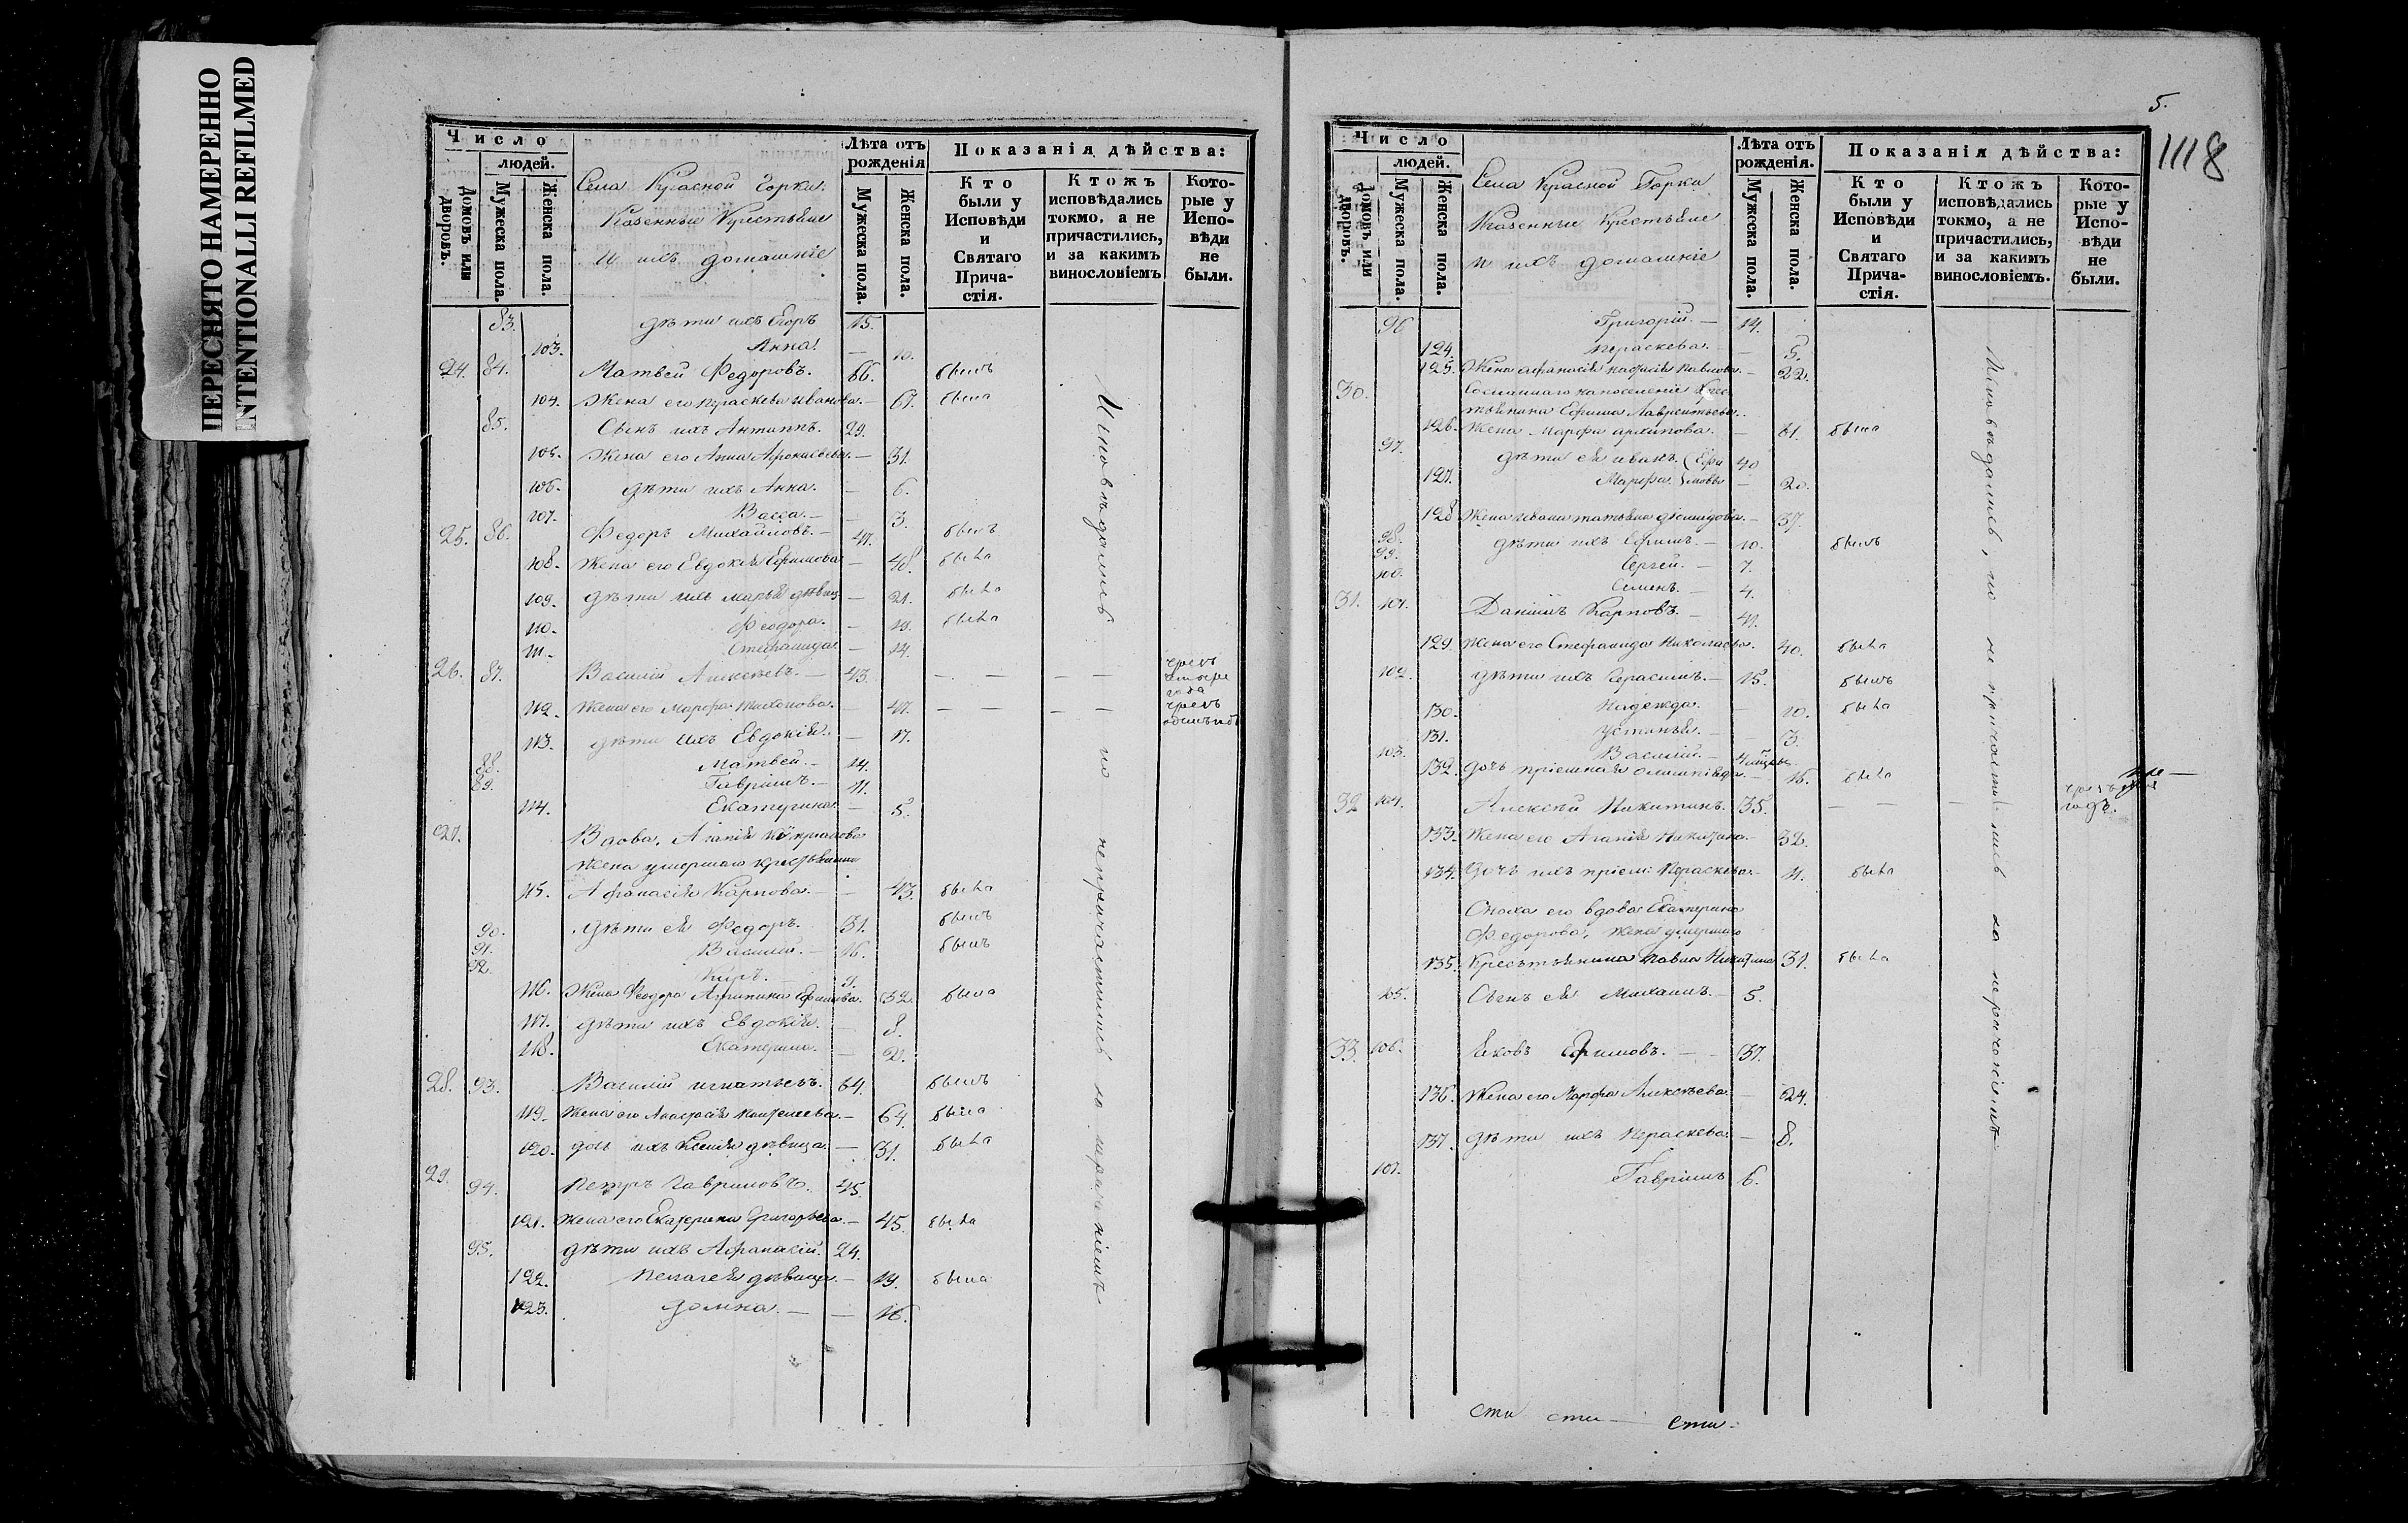 ПЕРЕСНЯТО НАМЕРЕННО
INTENTIONALLI REFILMED
Число
людей.
Домовъ или дворовъ.
Мужеска пола.
Женска пола.
Села Красной Горки
Казенные Крестьяне
и ихъ домашніе
Лѣта отъ рожденія
Мужеска пола.
Женска пола.
Показанія дѣйства:
Кто были у Исповѣди и Святаго Прича-стія.
Ктожъ исповѣдались токмо, а не причастились, и за какимъ винословіемъ.
Кото-рые у Испо-вѣди не были.
83. дѣти ихъ Егоръ 15.
103. Анна. — 10.
24. 84. Матвей Федоровъ. 66. былъ
104. Жена его Параскева Иванова. — 67. была
85. Сынъ ихъ Антиппъ. 29.
105. Жена его Анна Афонасьева. — 31.
106. дѣти ихъ Анна. — 6.
107. Васса. — 3.
25. 86. Федоръ Михайловъ. — 47. былъ
108. Жена его Евдокія Ефимова — 48. была
109. дѣти ихъ Марья дѣвиц — 21. была
110. Феодора. — 19. была
111. Стефанида — 14.
26. 87. Василій Алексѣевъ. — 43. — — — — чрезъ четыре года
112. Жена его Марфа Тихонова. — 47. — — — — чрезъ одинъ годъ
113. дѣти ихъ Евдокія. — 17.
88. Матвей. — 14.
89. Гавріилъ. — 11.
114. Екатерина. — 5.
27. Вдова, Агапія Кипріанова
жена умершаго крестьянина
115. Афанасія Карпова. — — 43. была
90. дѣти ея Федоръ. 31. былъ
91. Василій. — 16. былъ
92. Киръ. — 9.
116. Жена Феодора Агрипина Ефимова. 32. была
117. дѣти ихъ Евдокія. — 8.
118. Екатерина. — 2.
28. 93. Василій Игнатьевъ. 64. былъ
119. Жена его Анастасія — 64. была
120. дочь ихъ Ксенія дѣвица. — 31. была
29. 94. Петръ Гавриловъ. 45.
121. Жена его Екатерина Григорьева. — 45. была
95. дѣти ихъ Афанасій. 24.
122. Пелагея дѣвица. — 19. была
123. Домна. — — 16.
Исповѣдались но непричастились за нераченіемъ
5.
1118
Число
людей.
Домовъ или дворовъ.
Мужеска пола.
Женска пола.
Села Красной Горки
Казенные Крестьяне
и ихъ домашніе
Лѣта отъ рожденія.
Мужеска пола.
Женска пола.
Показанія дѣйства:
Кто были у Исповѣди и Святаго Прича-стія.
Ктожъ исповѣдались токмо, а не причастились, и за какимъ винословіемъ.
Кото-рые у Испо-вѣди не были.
96 Григорій. — 14.
124. Параскева. — — 5.
125. Жена Афанасія Павлова. — 22.
30. Сосланнаго на поселеніе Крес-
тьянина Ефима Лаврентьева.
126. Жена Марфа Архипова. — 61. была
97. дѣти ея Иванъ. (Ефи 40
127. Марфа. )мовы — 20.
128 Жена Ивана Татьяна Діомидова. — 37.
98. дѣти ихъ Ефимъ. — 10. былъ
99. Сергей. — 7.
100. Семенъ. — 4.
31. 101. Даніилъ Карповъ. — 41.
129. Жена его Стефанида Николаева. 40. была
102. дѣти ихъ Герасимъ. — 15. былъ
130. Надежда. — 10. была
131. Устинья. — 3.
103. Василій. —
132. дочь пріемная — 16. была
32 104. Алексѣй Никитинъ. 35. — — — годъ.
133. Жена его Агапія — 32.
134. Дочь ихъ пріем: Параскева. — 11. была
Сноха его вдова Екатерина
Федорова, жена умершаго
135. Крестьянина Павла Никитина 31. была
105. Сынъ ея Михаилъ. 5.
33. 106. Яковъ Ефимовъ. — 37.
136. Жена его Марфа Алексѣева. — 24.
137. дѣти ихъ Параскева. — 8.
107. Гавріилъ 6.
Исповѣдались, но не причастились за нераченіемъ
сти сти — сти.